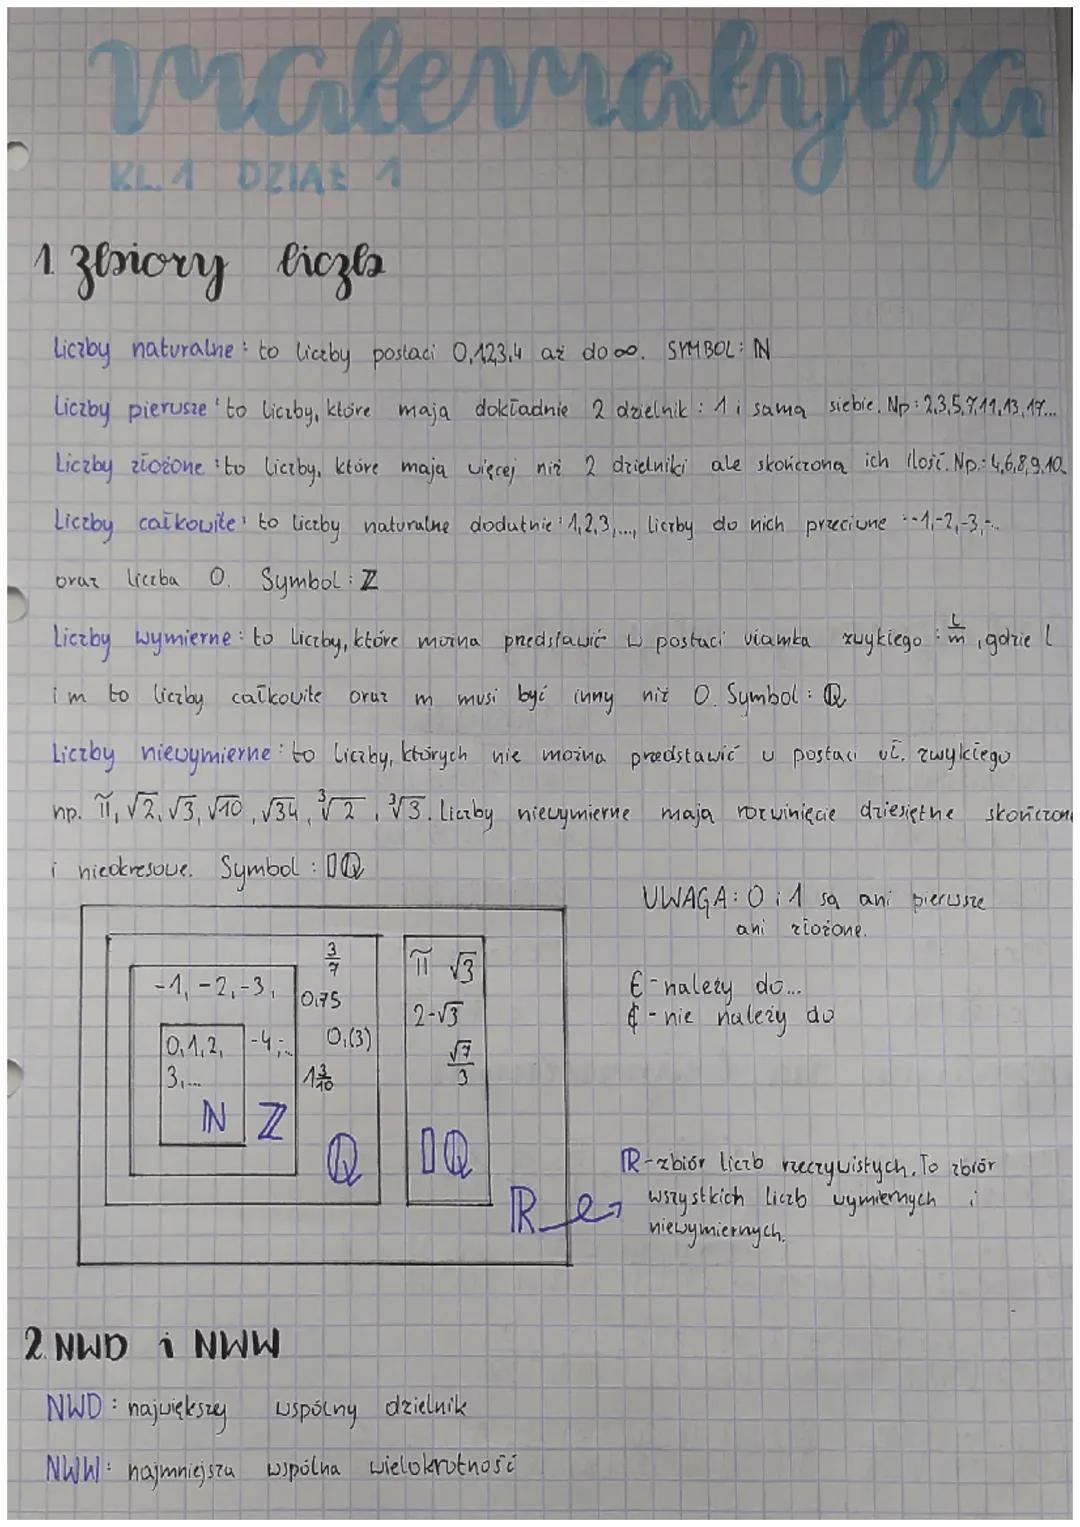 matematyka
KL.1 DZIAŁ 1
1. Zbiory liczb
Liczby naturalne: to liczby postaci 0,1,2,3,4 aż do ∞. SYMBOL: ℕ
Liczby pierwsze: to liczby, które mają dokładnie 2 dzielnik: 1 i samą siebie. Np: 2,3,5,7,11,13,17...
Liczby złożone: to liczby, które mają więcej niż 2 dzielniki ale skończoną ich ilość. Np.: 4,6,8,9,10
Liczby całkowite: to liczby naturalne dodatnie: 1,2,3,..., liczby do nich przeciwne: -1,-2,-3,...
oraz liczba 0. Symbol: ℤ
Liczby wymierne: to liczby, które można przedstawić w postaci ułamka zwykłego: l/m, gdzie l
i m to liczby całkowite oraz m musi być inny niż 0. Symbol: ℚ
Liczby niewymierne: to liczby, których nie można przedstawić w postaci uł. zwykłego
np. π, √2, √3, √10, √34, ∛2, ∛3. Liczby niewymierne mają rozwinięcie dziesiętne skończone
i nieokresowe. Symbol: 𝕀ℚ
UWAGA: 0 i 1 są ani pierwsze
ani złożone.
∈ - należy do...
∉ - nie należy do
-1, -2, -3,
-4,...
0,1,2,
3,...
ℕ
ℤ
3/7
0,75
0,(3)
1 3/10
ℚ
π √3
2-√3
√7/3
𝕀ℚ
ℝ
ℝ - zbiór liczb rzeczywistych. To zbiór
wszystkich liczb wymiernych i
niewymiernych.
2. NWD i NWW
NWD: największy wspólny dzielnik
NWW: najmniejsza wspólna wielokrotność